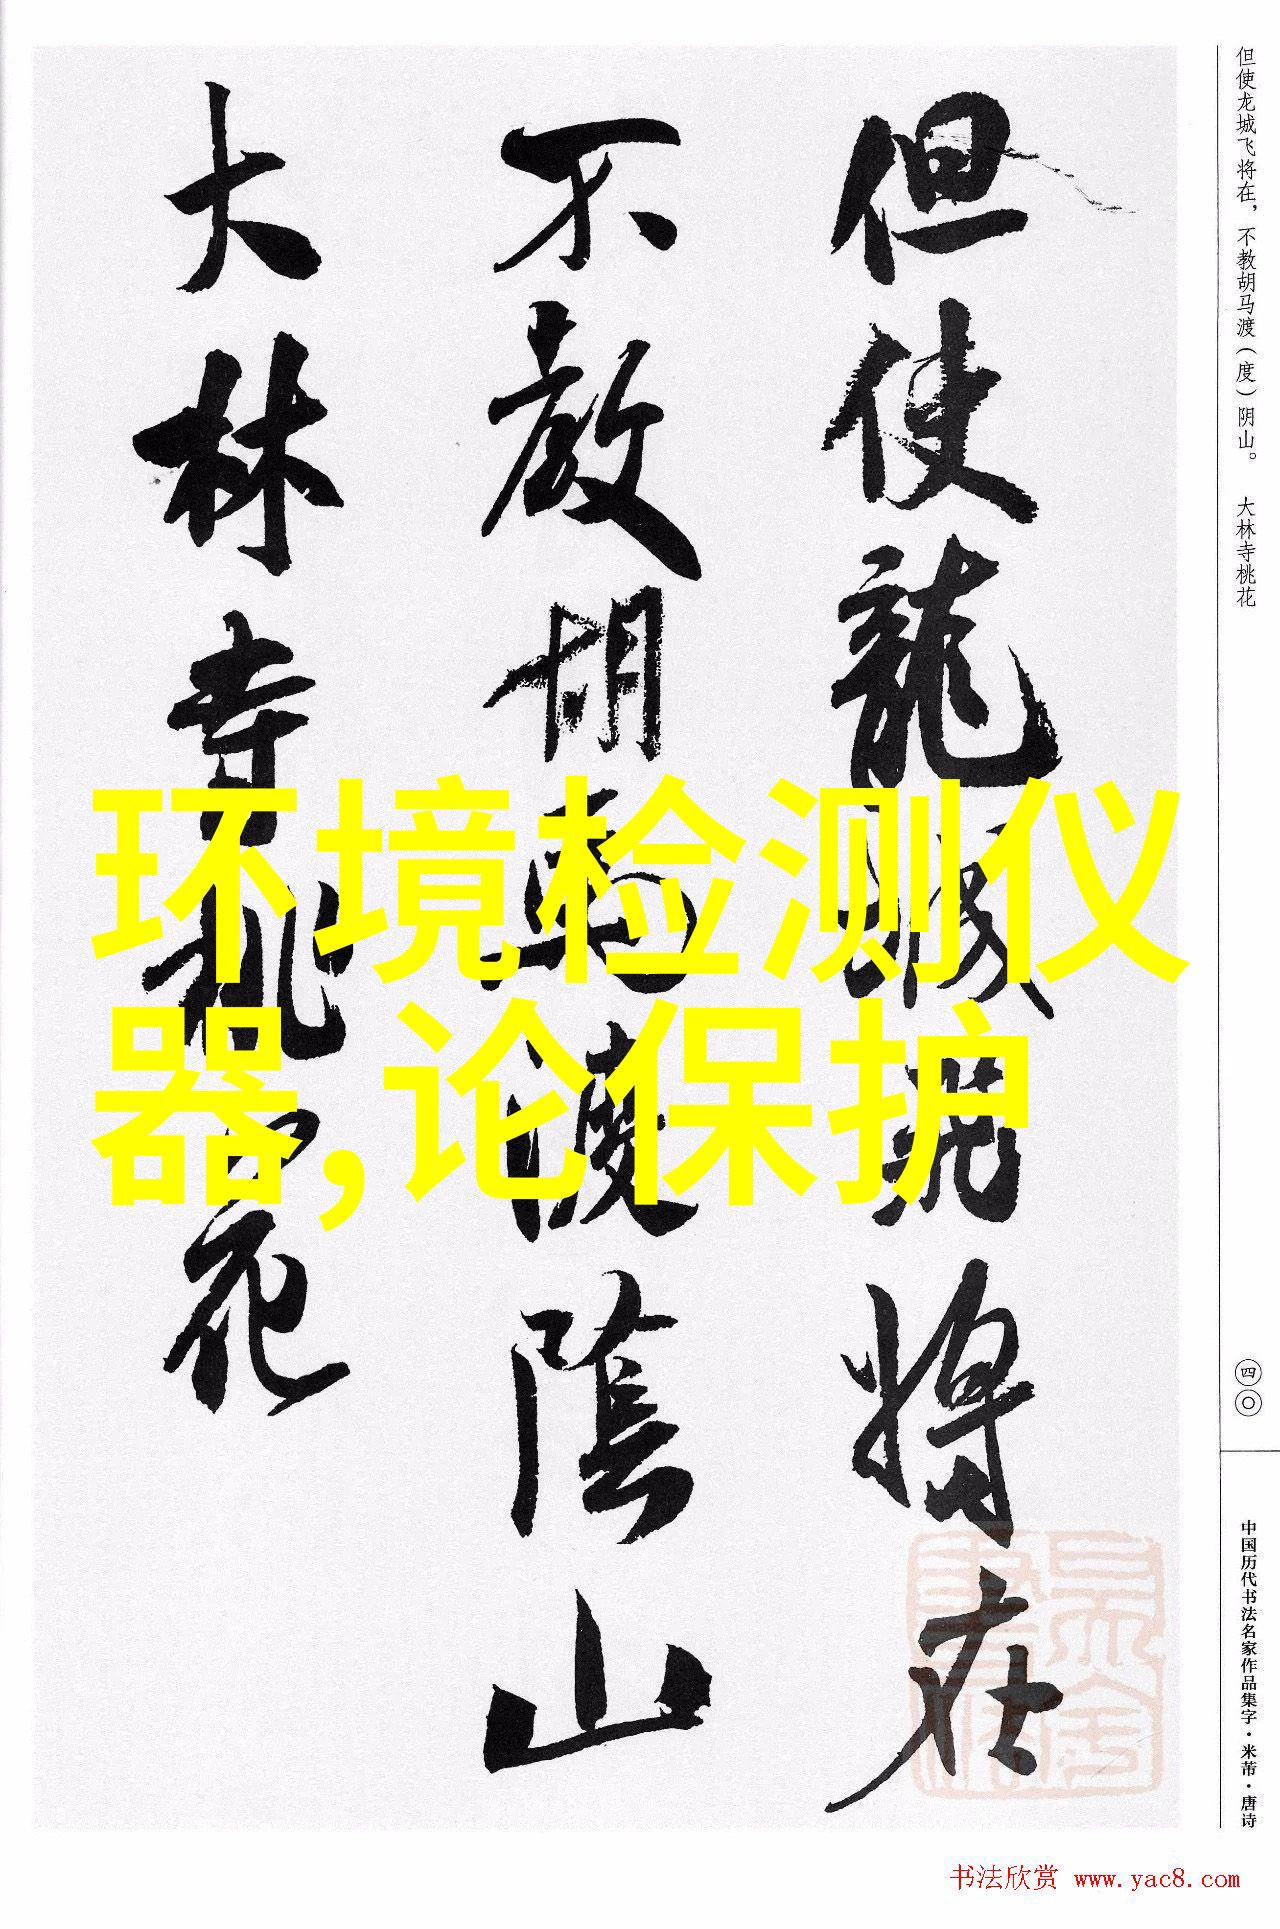 但使龙城飞将在，不教胡马渡（度）阴山。 大林寺桃花
但使龍城飛将在
不教胡馬渡陰山
大林寺桃花
环境检测仪
器,论保护
四〇
中国历代书法名家作品集字·米芾·唐诗
书法欣赏 www.yac8.com